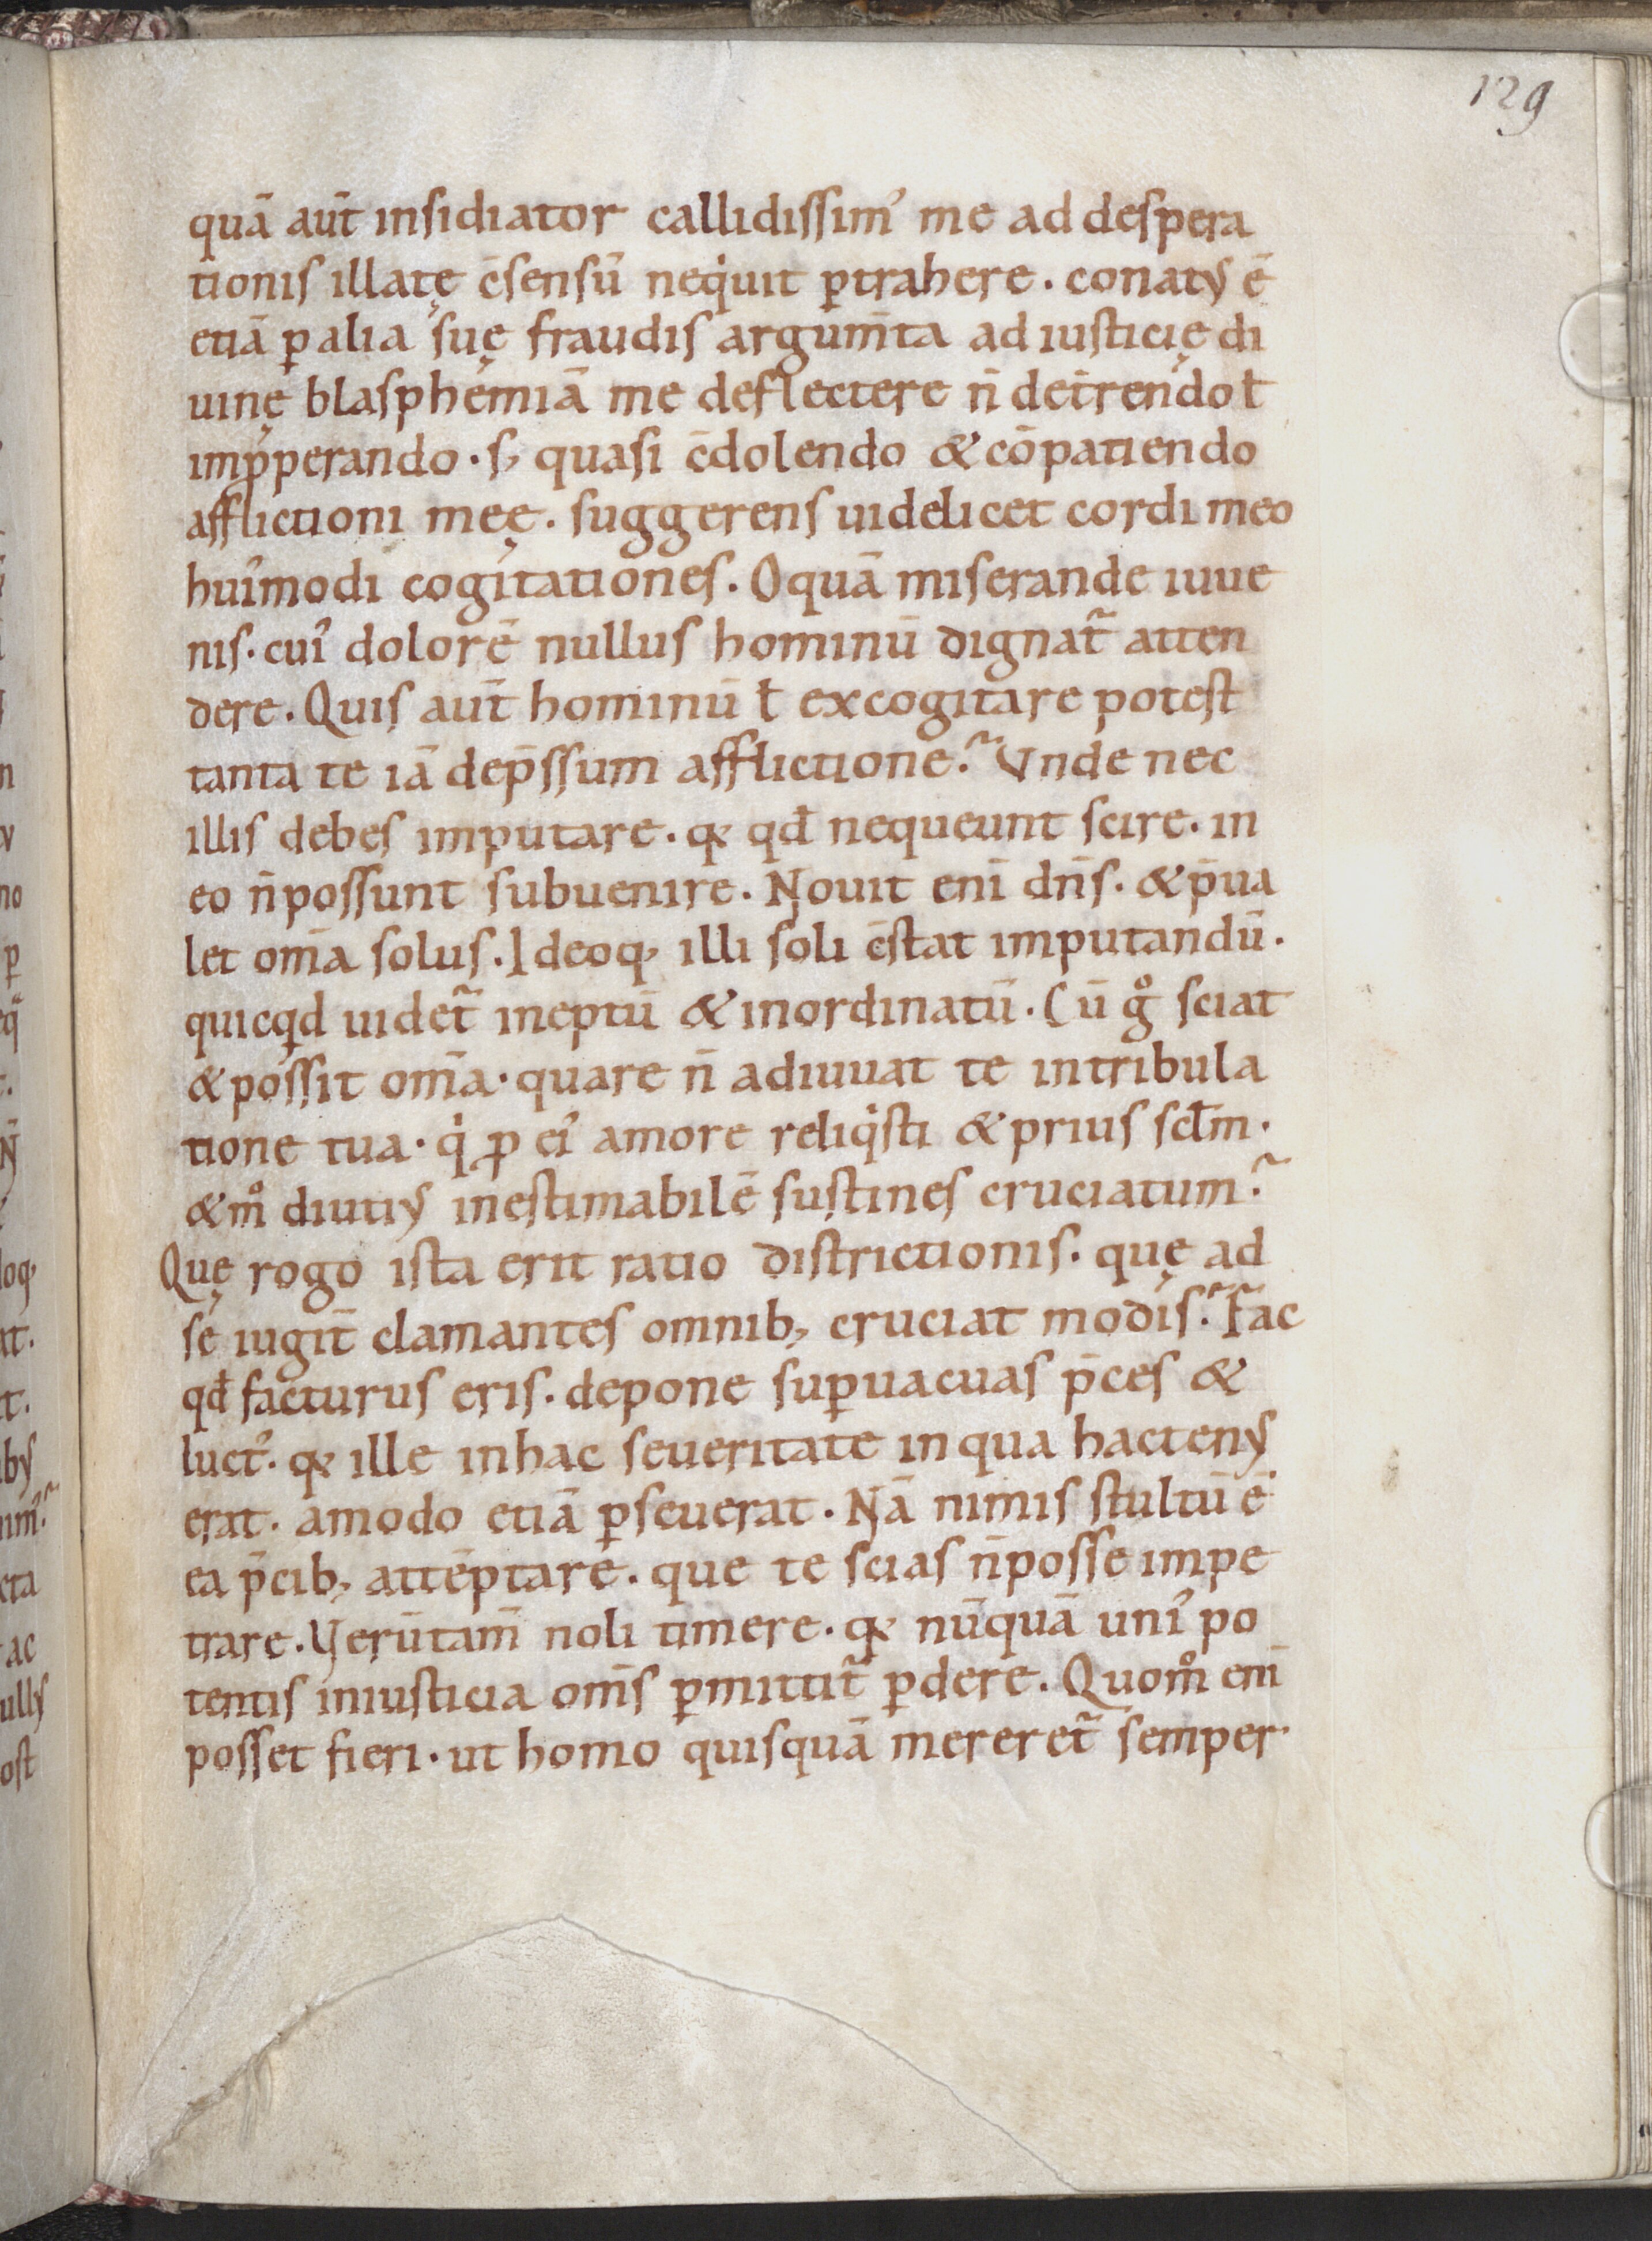 129
quā aut̄ insidiator callidissim᾿ me ad despera
tionis illatę c̄sensū neq̇uit ꝑtrahere. conatꝰ ē
etiā ꝑ alia suę fraudis argum̄ta ad iusticię di
uinę blasphemiā me deflectere n̄ det̄rendo ł
imꝓperando. s; quasi c̄dolendo & cōpatiendo
afflictioni meę. suggerens uidelicet cordi meo
hui᾿modi cogitationes. O quā miserande iuue
nis. cui᾿ dolorē nullus hominū dignat̃ atten
dere. Quis aut̄ hominū ł excogitare potest
tanta te iā dep̄ssum afflictione? Vnde nec
illis debes imputare. q; qđ nequeunt scire. in
eo n̄ possunt subuenire. Nouit eni̅ dn̄s. & p̄ua
let om̄a solus. Ideoq; illi soli c̄stat imputandū.
quicqd uidet̃ ineptū & inordinatū. Cū g̊ sciat
& possit om̄a. quare n̄ adiuuat te in tribula
tione tua. q̇ ꝓ ei᾿ amore reliq̇sti & prius sc̄łm.
& m̊ diutiꝰ inestimabilē sustines cruciatum?
Quę rogo ista erit ratio districtionis. quę ad
se iugit̄ clamantes omnib; cruciat modis? Fac
qđ facturus eris. depone suꝑuacuas p̄ces &
luct᾿. q; ille in hac seueritate in qua hactenꝰ
erat. amodo etiā ꝑseuerat. Nā nimis stultū ē
ea p̄cib; attēptare. que te scias n̄ posse impe
trare. Verūtam̄ noli timere. q; nūquā uni᾿ po
tentis iniusticia om̄s ꝑmittit̃ ꝑdere. Quom̊ eni̅
posset fieri. ut homo quisquā mereret̃ semper.